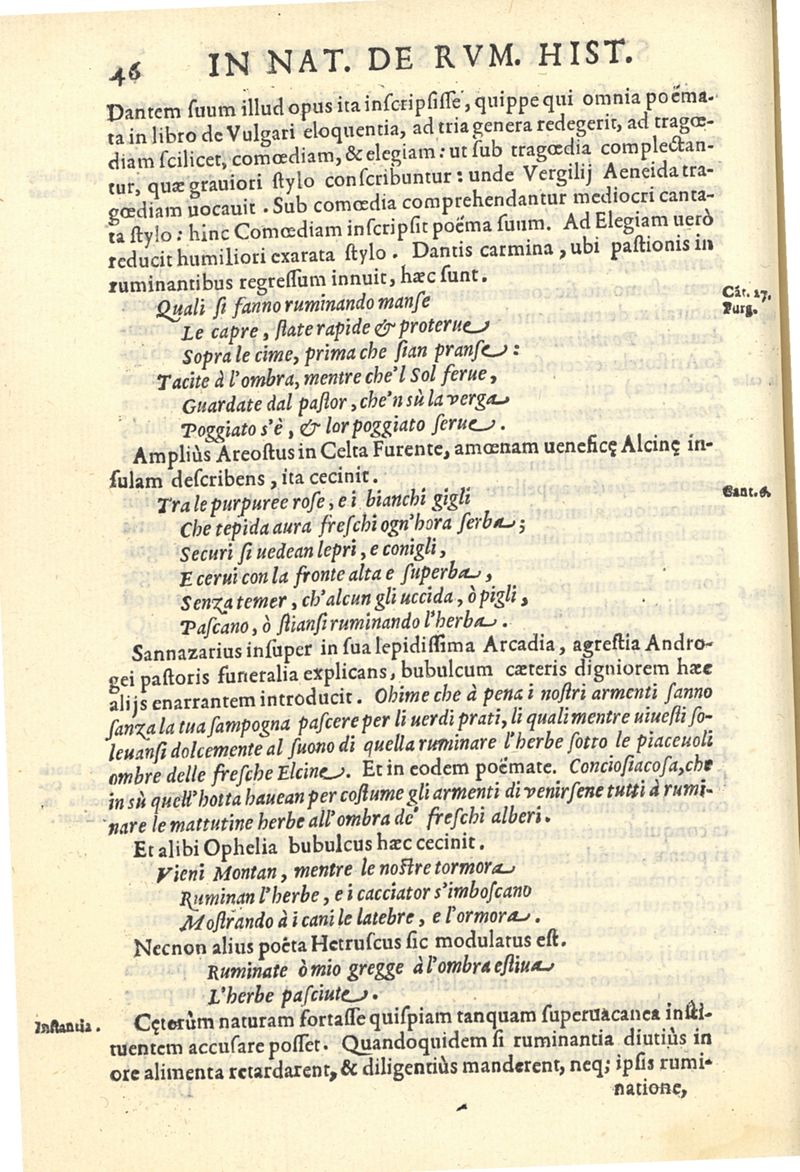 46 IN NAT. DE RVM. HIST.
Dantem suum illud opus ita inscripsisse, quippe qui omnia poëma-
ta in libro de Vulgari eloquentia, ad tria genera redegerit, ad tragœ-
diam scilicet, comœdiam, & elegiam: ut sub tragœdia complectan-
tur, quæ grauiori stylo conscribuntur: unde Vergilij Aeneida tra-
gœdiam uocauit. Sub comœdia comprehendantur mediocri canta-
ta stylo: hinc Comœdiam inscripsit poëma suum. Ad Elegiam uerò
reducit humiliori exarata stylo. Dantis carmina, ubi pastionis in
ruminantibus regressum innuit, hæc sunt.
Quali si fanno ruminando manse
Cāt. 27.
Purg.
Le capre, state rapide & proterue
Sopra le cime, prima che sian pranse:
Tacite à l'ombra, mentre che'l Sol ferue,
Guardate dal pastor, che'n sù la verga
Poggiato s'è, & lor poggiato serue.
Ampliùs Areostus in Celta Furente, amœnam ueneficę Alcinę in-
sulam describens, ita cecinit.
Tra le purpuree rose, e i bianchi gigli
Cant. 6.
Che tepida aura freschi ogn'hora serba;
Securi si uedean lepri, e conigli,
E cerui con la fronte alta e superba,
Senza temer, ch'alcun gli uccida, ò pigli,
Pascano, ò stiansi ruminando l'herba.
Sannazarius insuper in sua lepidissima Arcadia, agrestia Andro-
gei pastoris funeralia explicans, bubulcum cæteris digniorem hæc
alijs enarrantem introducit. Ohime che à pena i nostri armenti sanno
sanza la tua sampogna pascere per li uerdi prati, li quali mentre uiuesti so-
leuansi dolcemente al suono di quella ruminare l'herbe sotto le piaceuoli
ombre delle fresche Elcine. Et in eodem poëmate. Conciosiacosa, che
in sù quell'hotta hauean per costume gli armenti di venirsene tutti à rumi-
nare le mattutine herbe all'ombra de' freschi alberi.
Et alibi Ophelia bubulcus hæc cecinit.
Vieni Montan, mentre le nostre tormora
Ruminan l'herbe, e i cacciator s'imboscano
Mostrando à i cani le latebre, e l'ormora.
Necnon alius poëta Hetruscus sic modulatus est.
Ruminate ò mio gregge à l'ombra estiua
L'herbe pasciute.
Instantia. Cęterùm naturam fortasse quispiam tanquam superuacanea insti-
tuentem accusare posset. Quandoquidem si ruminantia diutiùs in
ore alimenta retardarent, & diligentiùs manderent, neq; ipsis rumi-
natione,